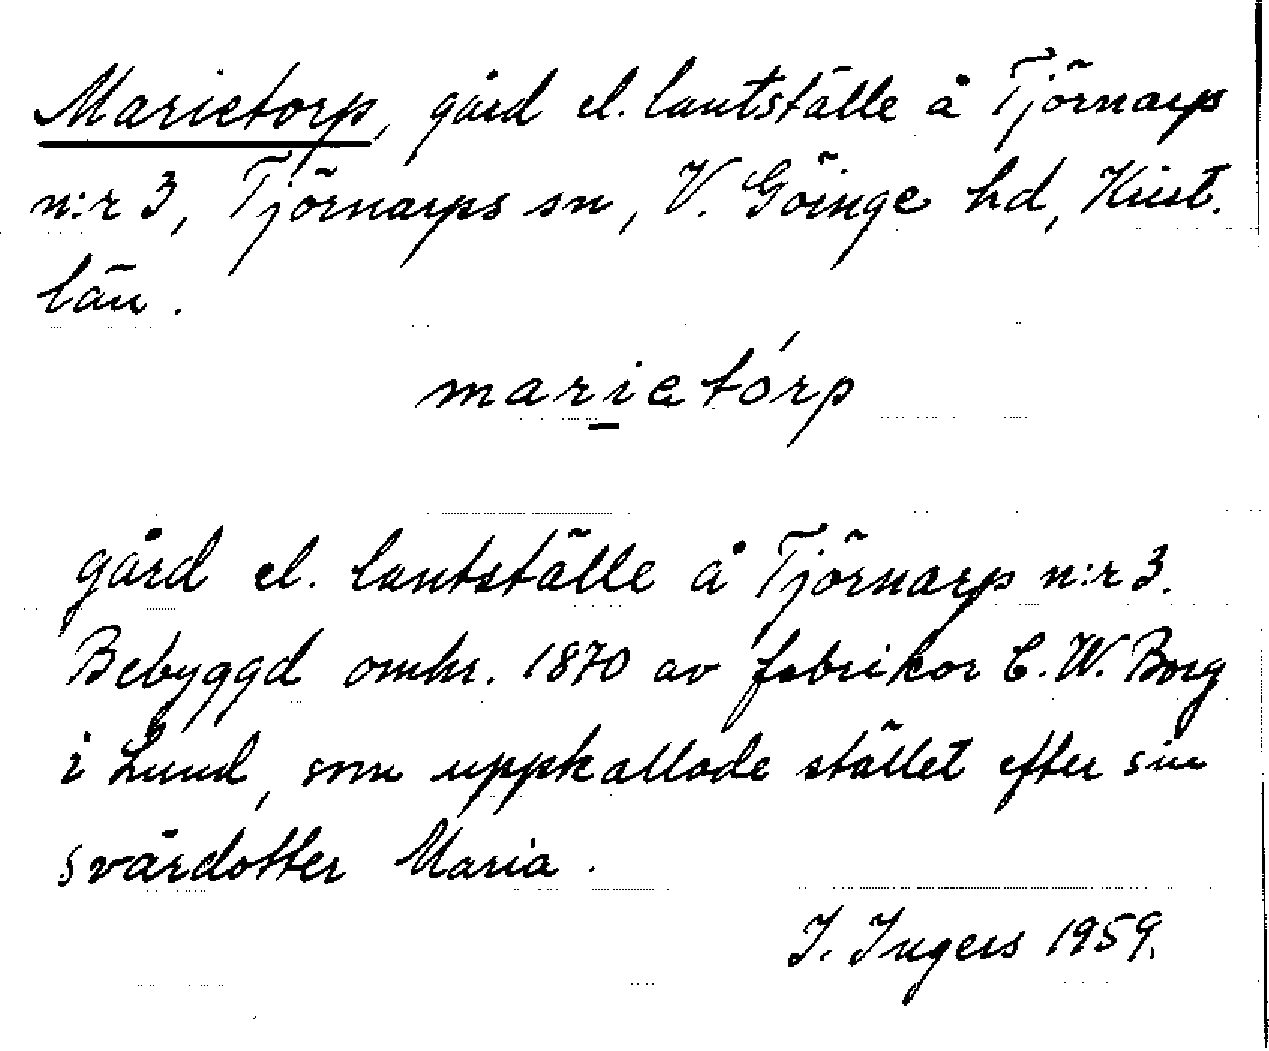 Marietorp, gård el. lantställe å Tjörnarp
n:r 3, Tjörnarps sn, V. Göinge hd, Krist.
län.
marietórp
gård el. lantställe å Tjörnarp n:r 3.
Bebyggd omkr. 1870 av fabrikör C. W. Borg
i Lund, som uppkallade stället efter sin
svärdotter Maria.
I. Ingers 1959.